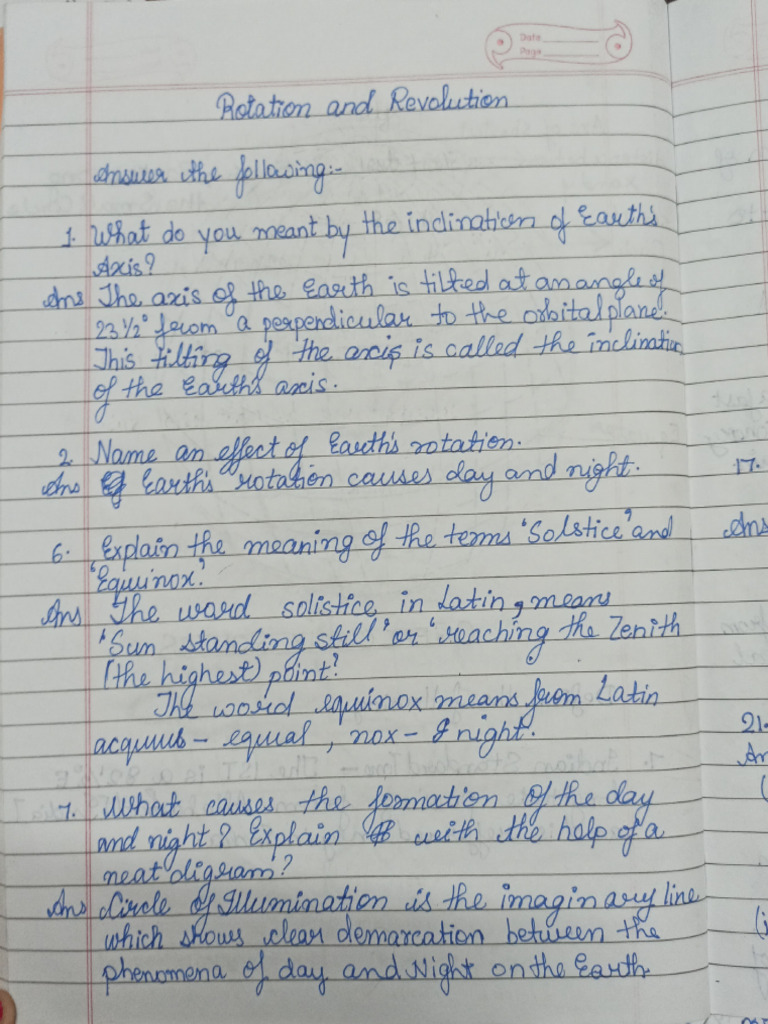 Date
Page
Rotation and Revolution
Answer the following:-
1. What do you meant by the inclination of Earth's
Axis?
Ans The axis of the Earth is tilted at an angle of
23 1/2° from a perpendicular to the orbital plane.
This tilting of the axis is called the inclination
of the Earth's axis.
2. Name an effect of Earth's rotation.
Ans Earth's rotation causes day and night.
6. Explain the meaning of the terms 'Solstice' and
'Equinox'.
Ans The word solistice in Latin, means
'Sun standing still' or 'reaching the Zenith
(the highest) point'.
The word equinox means from Latin
- equal, nox - night.
7. What causes the formation of the day
and night? Explain with the help of a
neat digram?
Ans Circle of Illumination is the imaginary line
which shows clear demarcation between the
phenomena of day and Night on the Earth
17.
Ans
21.
An